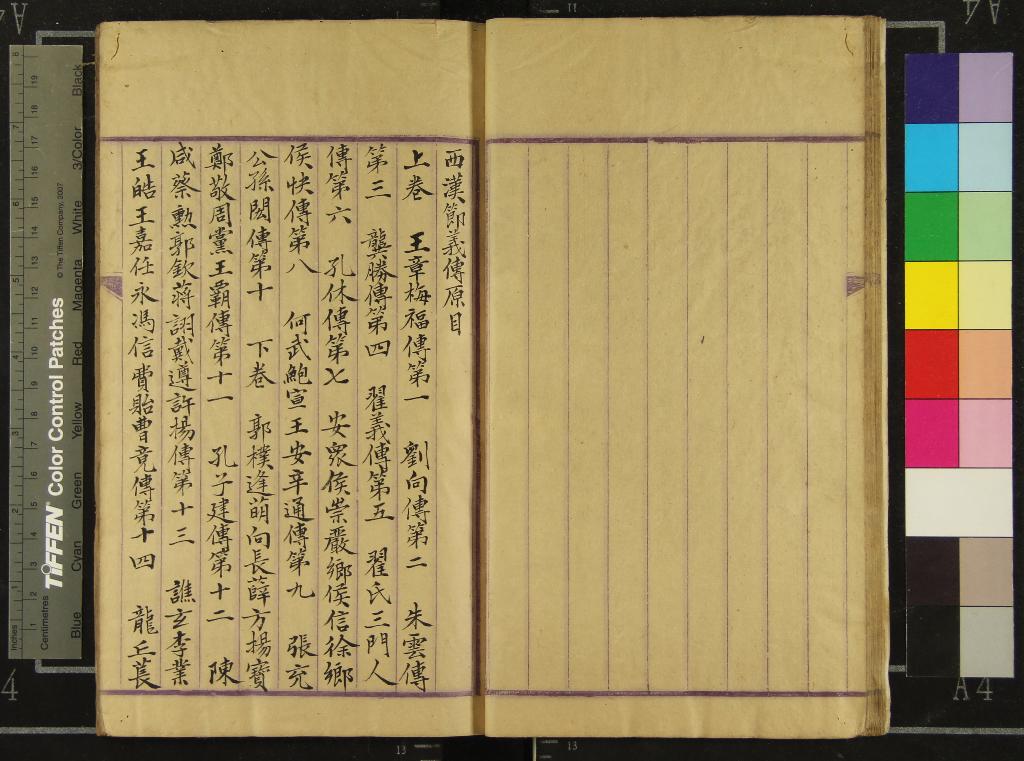 西漢節義傳原目
上卷 王章梅福傳第一 劉向傳第二 朱雲傳
第三 龔勝傳第四 翟義傳第五 翟氏三門人
傳第六 孔休傳第七 安眾侯崇嚴鄉侯信徐鄉
侯快傳第八 何武鮑宣王安辛通傳第九 張充
公孫閎傳第十 下卷 郭欉逢萌向長薛方揚寶
鄭敬周黨王霸傳第十一 孔子建傳第十二 陳
咸蔡勲郭欽蔣詡戴遵許揚傳第十三 譙玄李業
王皓王嘉任永馮信費貽曹竟傳第十四 龍丘萇
Inches
Centimetres
TIFFEN Color Control Patches
© The Tiffen Company, 2007
Blue Cyan Green Yellow Red Magenta White 3/Color Black
A4
A4
13
13